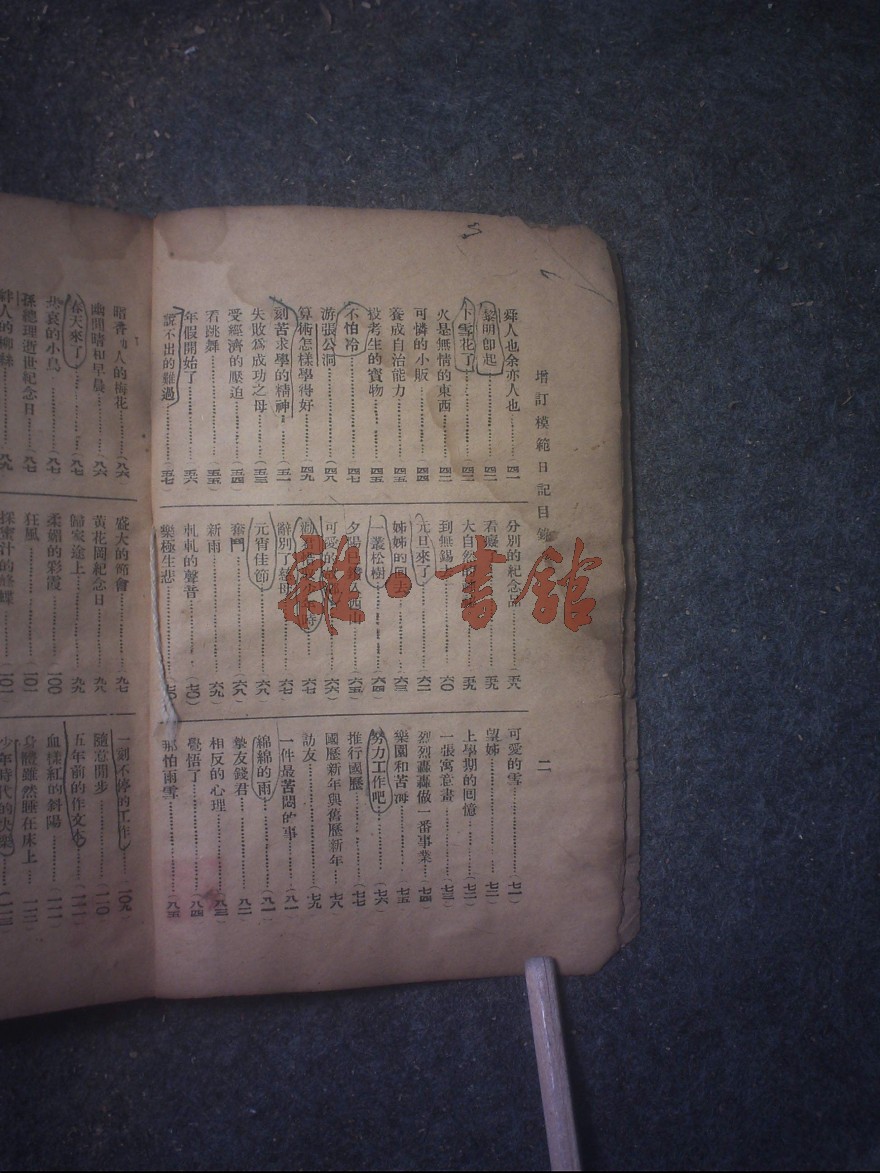 增訂模範日記目錄
二
舜人也余亦人也………(四一
黎明卽起………(四二
下雪花了………(四三
火是無情的東西………(四三
可憐的小販………(四四
養成自治能力………(四五
投考生的寶物………(四五
不怕冷………(四七
游張公洞………(四八
算術怎樣學得好………(四九
刻苦求學的精神………(五一
失敗爲成功之母………(五三
受經濟的壓迫………(五四
看跳舞………(五五
年假開始了………(五六
說不出的難過………(五七
分別的紀念品………(五八
看癡………(五九
大自然………(五九
到無錫………(六〇
元旦來了………(六二
姊姊的回去………(六三
一叢松樹………(六四
夕陽已墜入西山………(六五
可愛的………(六六
時………(六七
辭別了慈母………(六七
元宵佳節………(六八
奮鬥………(六八
新雨………(六九
軋軋的聲音………(七〇)
樂極生悲………(七〇
可愛的雪………(七一
望姊………(七二
上學期的囘憶………(七二
一張寓意畫………(七三
烈烈轟轟做一番事業………(七四
樂園和苦海………(七五
努力工作吧………(七六
推行國歷………(七七
國歷新年與舊歷新年………(七八
訪友………(七九
一件最苦悶的事………(八一
綿綿的雨………(八一
摯友錢君………(八二
相反的心理………(八三
覺悟了………(八四
那怕雨雪………(八五
昭香 人的梅花………(八六
幽閒晴和早晨………(八六
春天來了………(八七
悲哀的小鳥………(八七
孫總理逝世紀念日………(八七
絆人的柳絲………(八九
盛大的節會………九七
黃花岡紀念日………九八
歸家途上………九九
柔媚的彩霞………一〇〇
狂風………一〇一
採蜜汁的蜂蝶………一〇二
一刻不停的工作………一〇九
隨意閒步………一一〇
五年前的作文本………一一一
血樣紅的斜陽………一一一
身體雖然睡在床上………一一二
少年時代的快樂………一一三
雜·書館